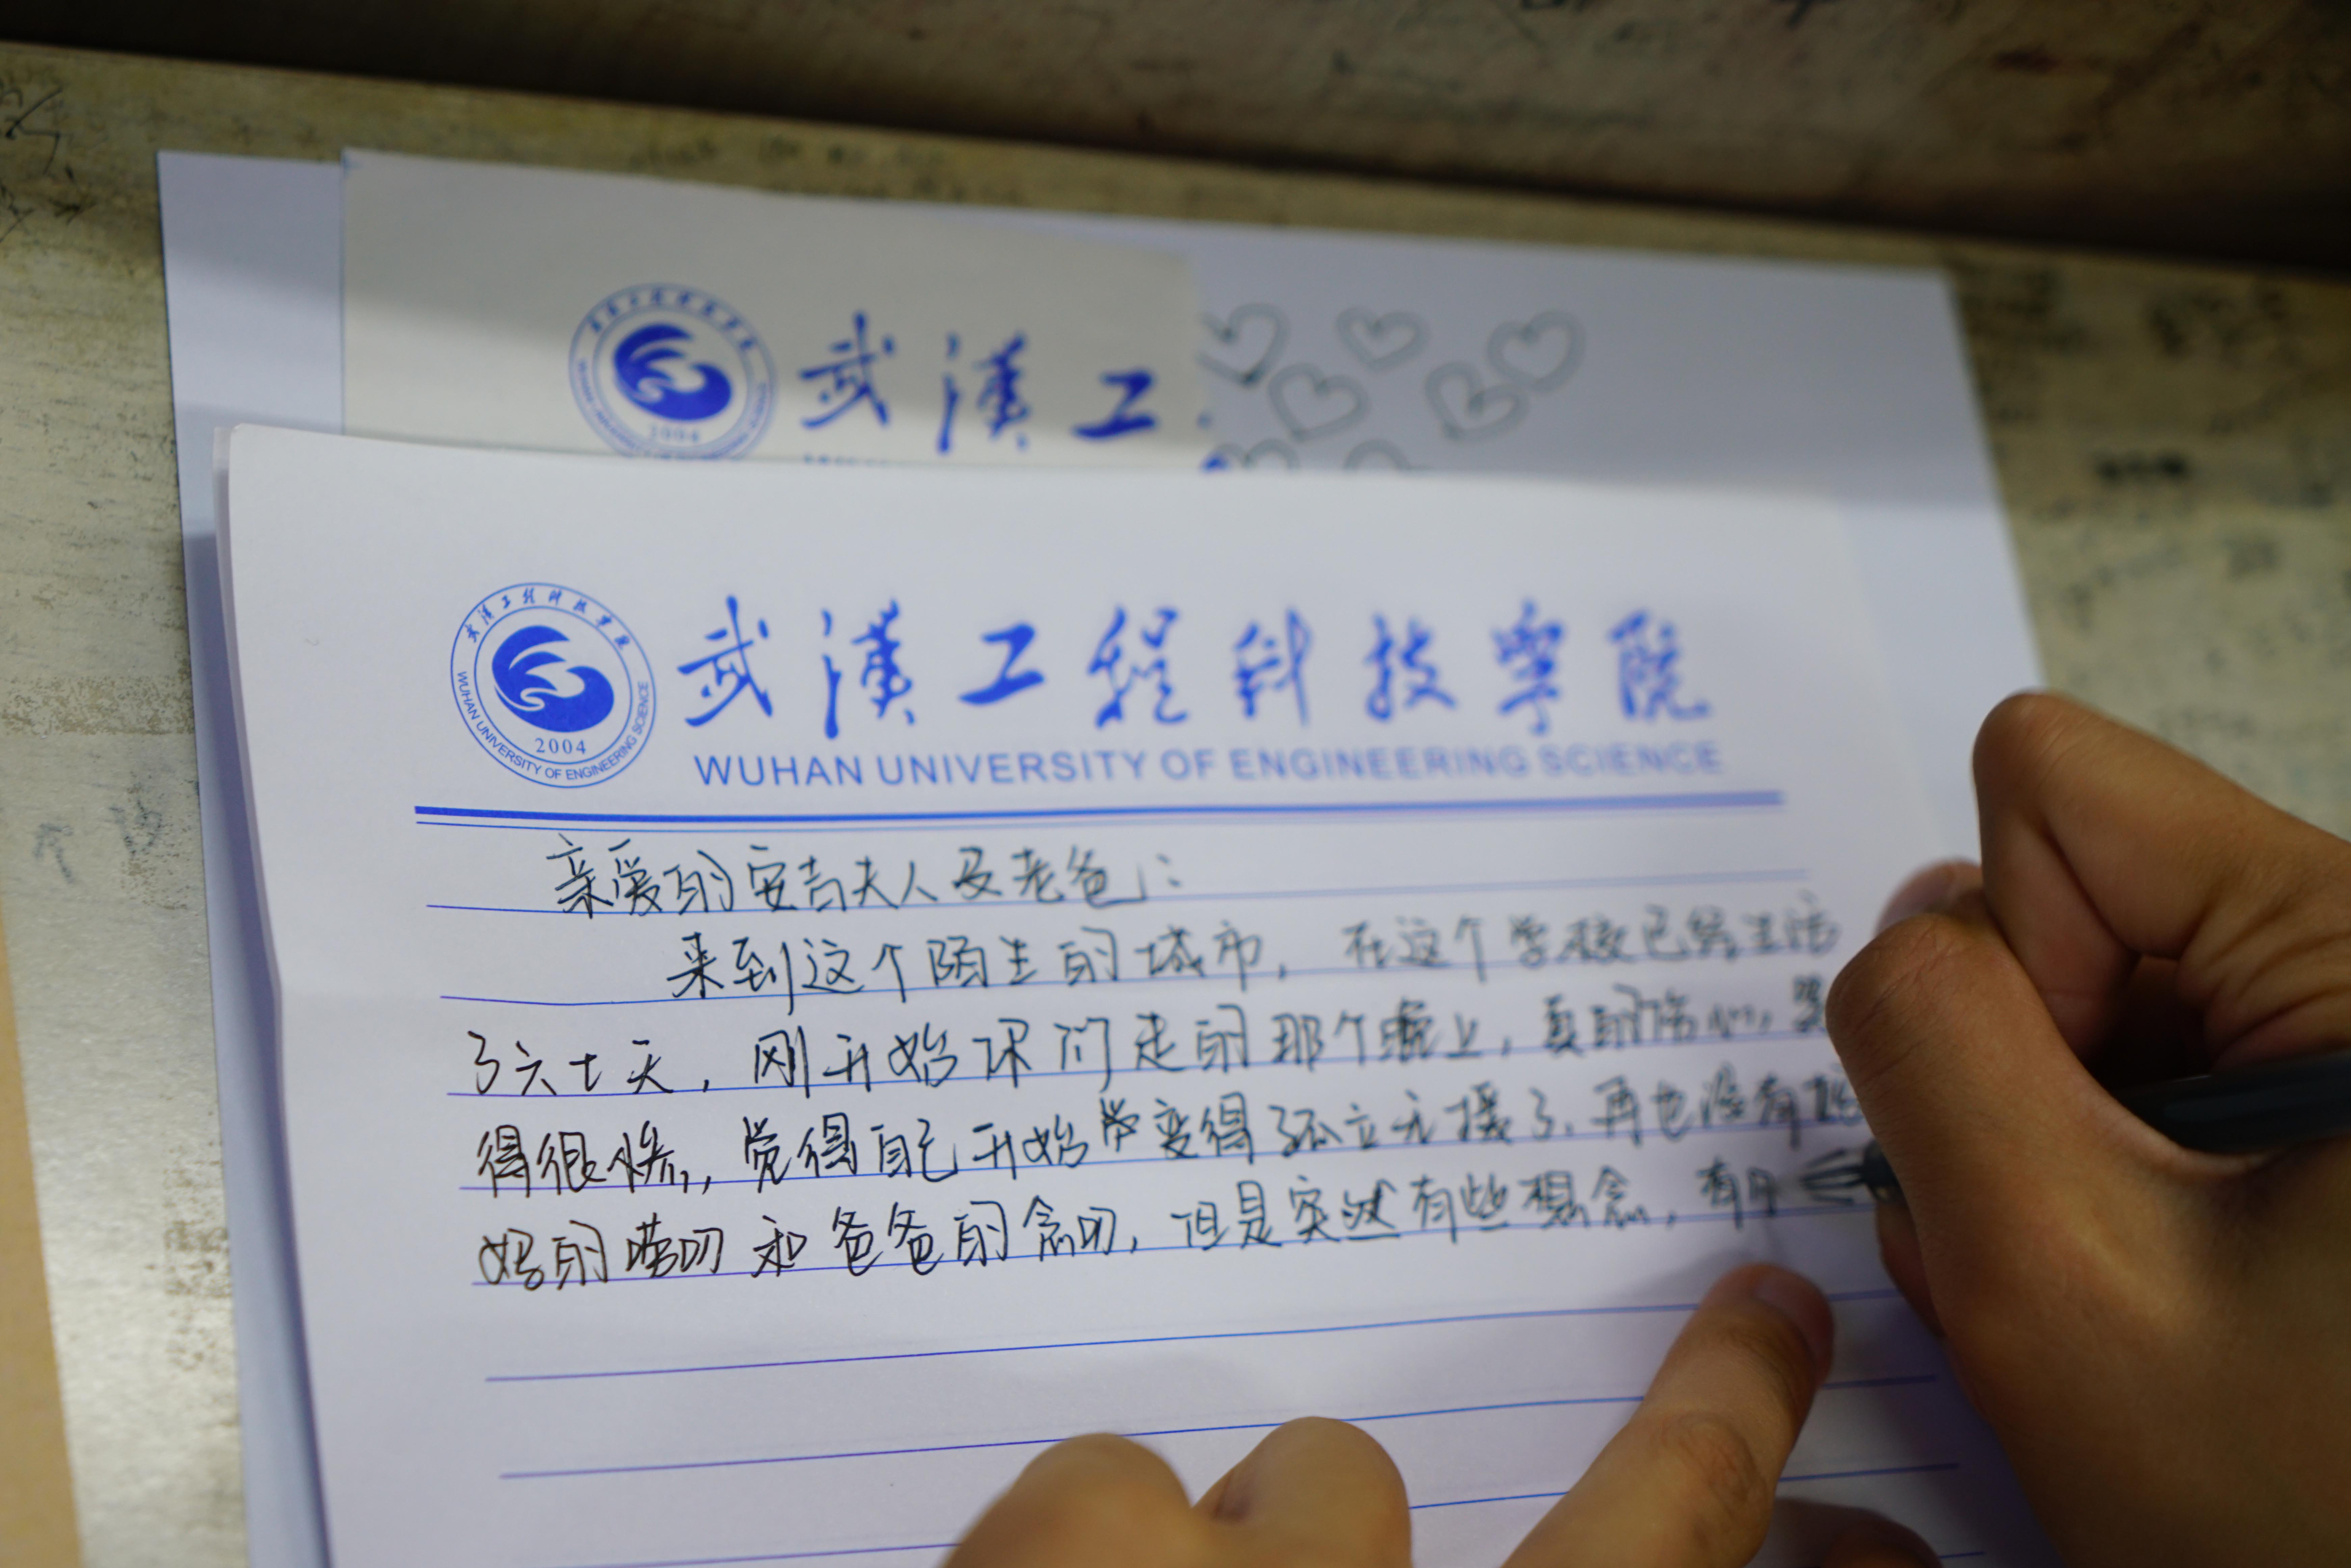 2004
武漢工
武漢工程科技学院
WUHAN UNIVERSITY OF ENGINEERING SCIENCE
2004
武漢工程科技学院
WUHAN UNIVERSITY OF ENGINEERING SCIENCE
亲爱的安吉夫人及老爸:
来到这个陌生的城市,在这个学校已经生活
了六七天,刚开始你们走的那个晚上,真的伤心,哭
得很惨,觉得自己开始变得孤立无援了.再也没有妈
妈的唠叨和爸爸的念叨,但是突然有些想念,有